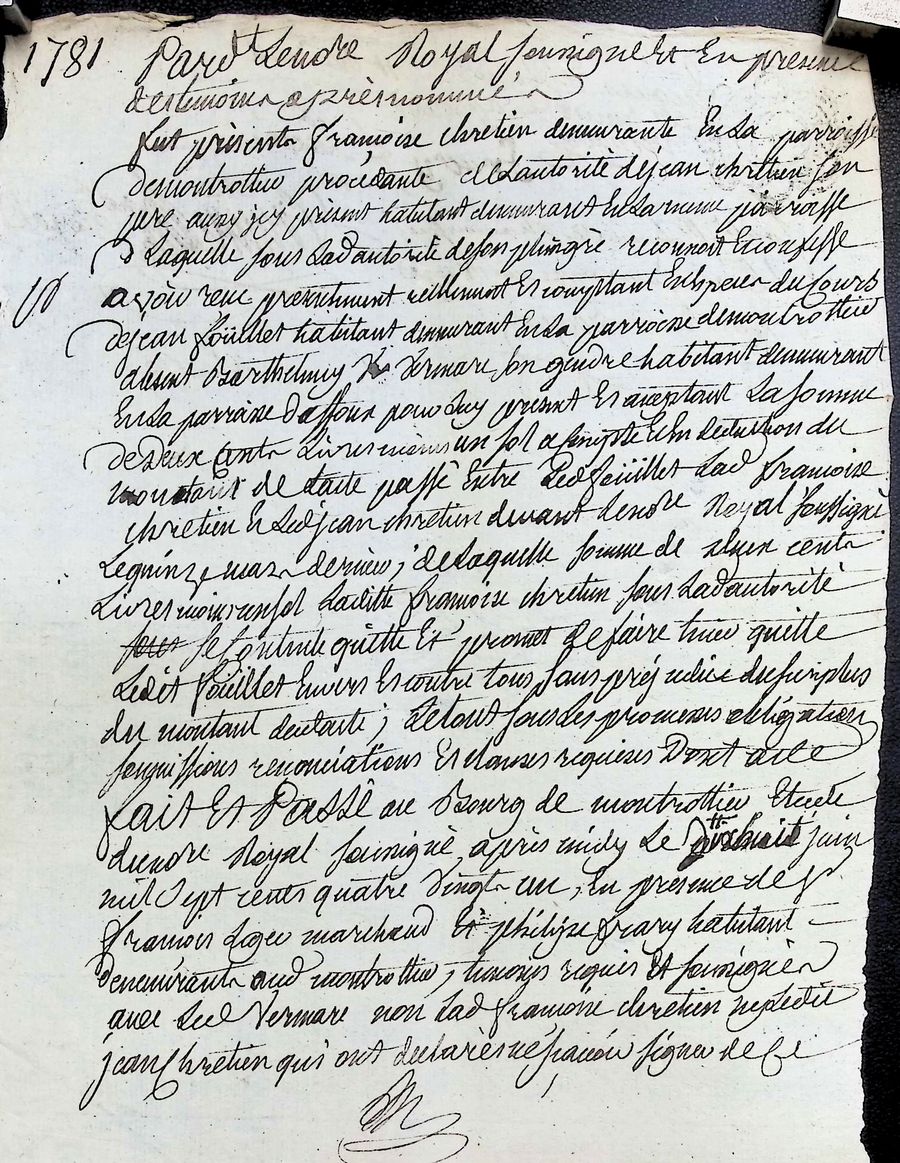 1781
Pard.t Lenore Royal soussigné Et En presence
destemoins aprèsnommés
fut présente françoise chretien demeurante En La parroisse
demontrottier procédante de Lautorité dejean chretien son
pere aussy icy présent habitant demeurant En La meme parroisse
Laquelle sous Ladautorité deson pere reconnoit Et confesse
avoir reçu présentement réellement Et comptant En Espèces du Cours
dejean foüillet habitant demeurant En La parroisse demontrottier
absent Barthelemy Vermare son gendre habitant demeurant
En La parroisse daffoux pour Luy présent Et acceptant La somme
dedeux Cents Livres moins un sol acompte Et En deduction du
montant de Lacte passé Entre Ledfoüillet Lad françoise
chretien Et Ledjean chretien devant Lenore Royal soussigné
Lequinze mars dernier, de Laquelle somme de deux cents
Livres moins un sol Laditte françoise chretien sous Ladautorité
se Contente quitte Et promet de faire tenir quitte
Ledit foüillet Envers Et contre tous sans préjudice du surplus
du montant dudacte; Le tout sous Les promesses obligations
soumissions renonciations Et clauses requises Dont acte
fait Et Passé au Bourg de montrottier Etude
dunore Royal soussigné après midy Le dixhuit juin
mil Sept cents quatre Vingt un, En présence de Sr
françois Loger marchand Et philipe frary habitant
demeurants aud montrottier, temoins requis Et soussignés
avec Led Vermare non Lad françoise chretien ny Ledit
jean Chretien qui ont declarés ne sçavoir signer de Ce